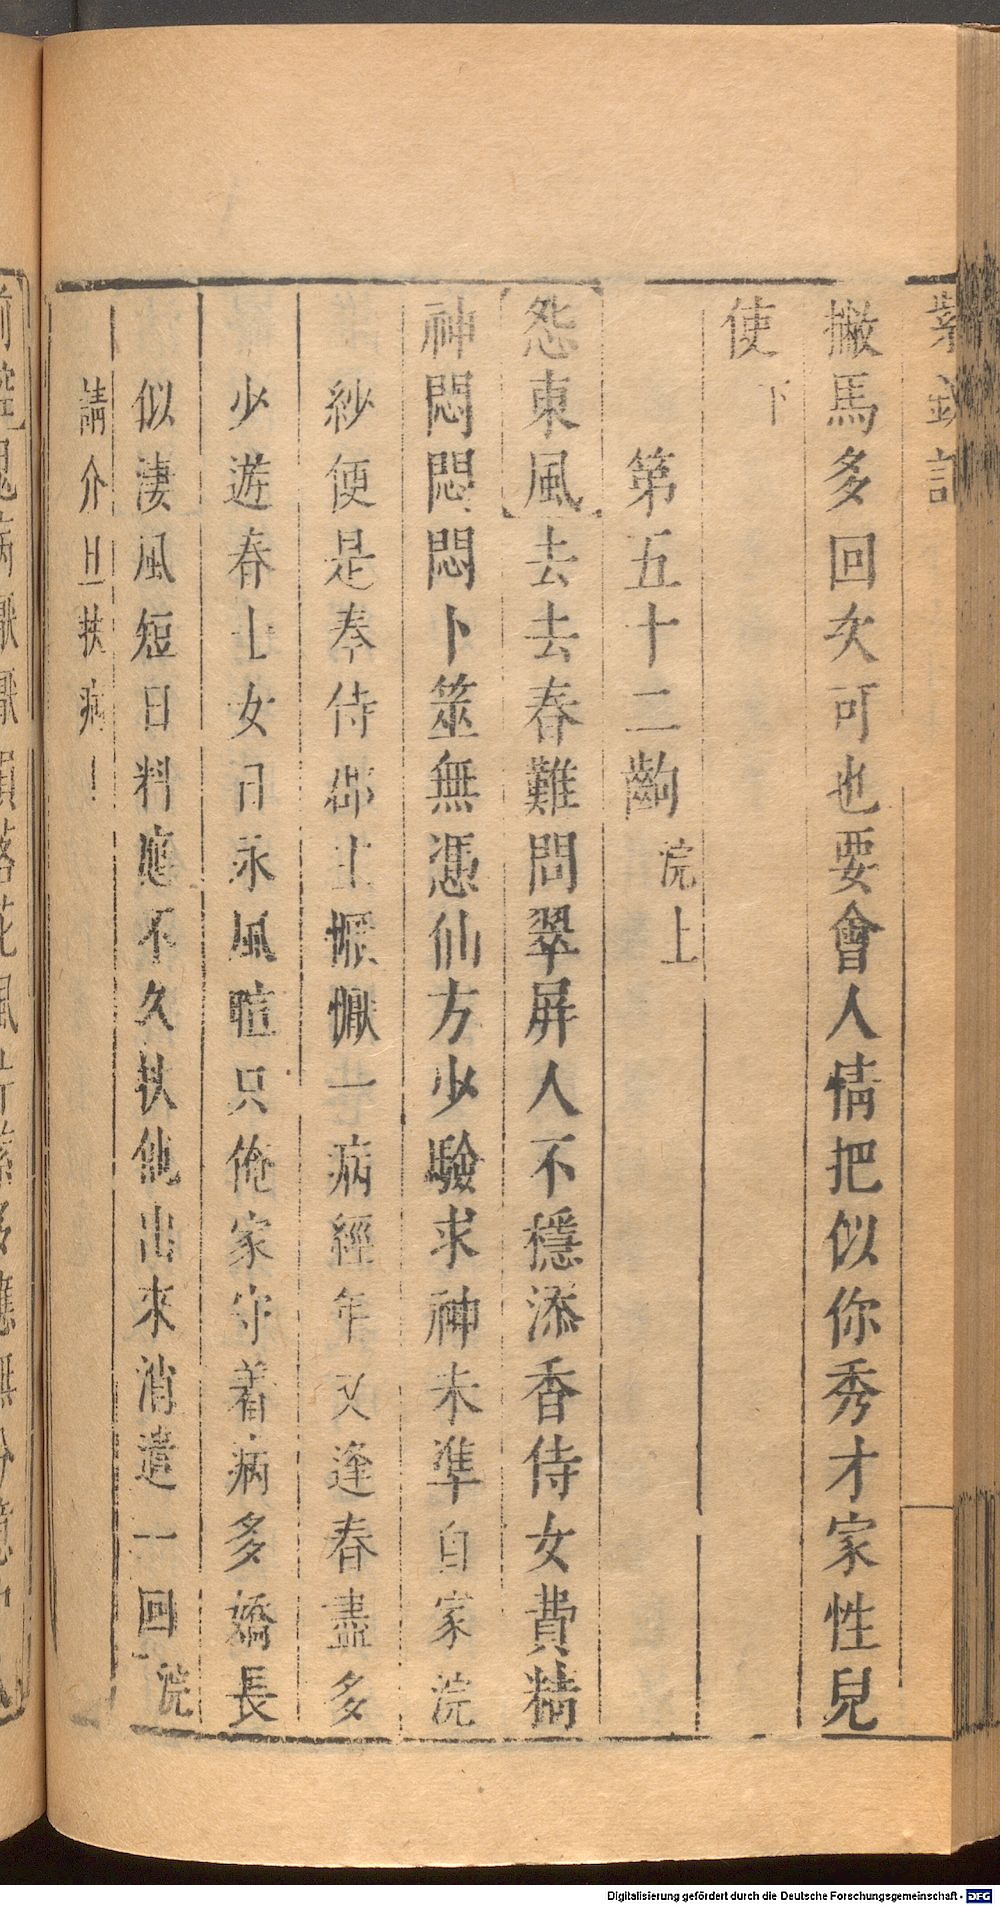 紫釵記
撇馬多回次可也要會人情把似你秀才家性兒
使 下
第五十二齣 浣上
怨東風去去春難問翠屏人不穩添香侍女費精
神悶悶悶卜筮無憑仙方少驗求神未準自家浣
紗便是奉侍郡主懨懨一病經年又逢春盡多
少遊春士女日永風暄只俺家守着病多嬌長
似淒風短日料應不久扶他出來消遣一回 浣
請介旦扶病上
前腔
Digitalisierung gefördert durch die Deutsche Forschungsgemeinschaft - DFG